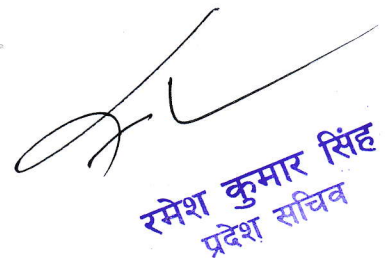 रमेश कुमार सिंह
प्रदेश सचिव